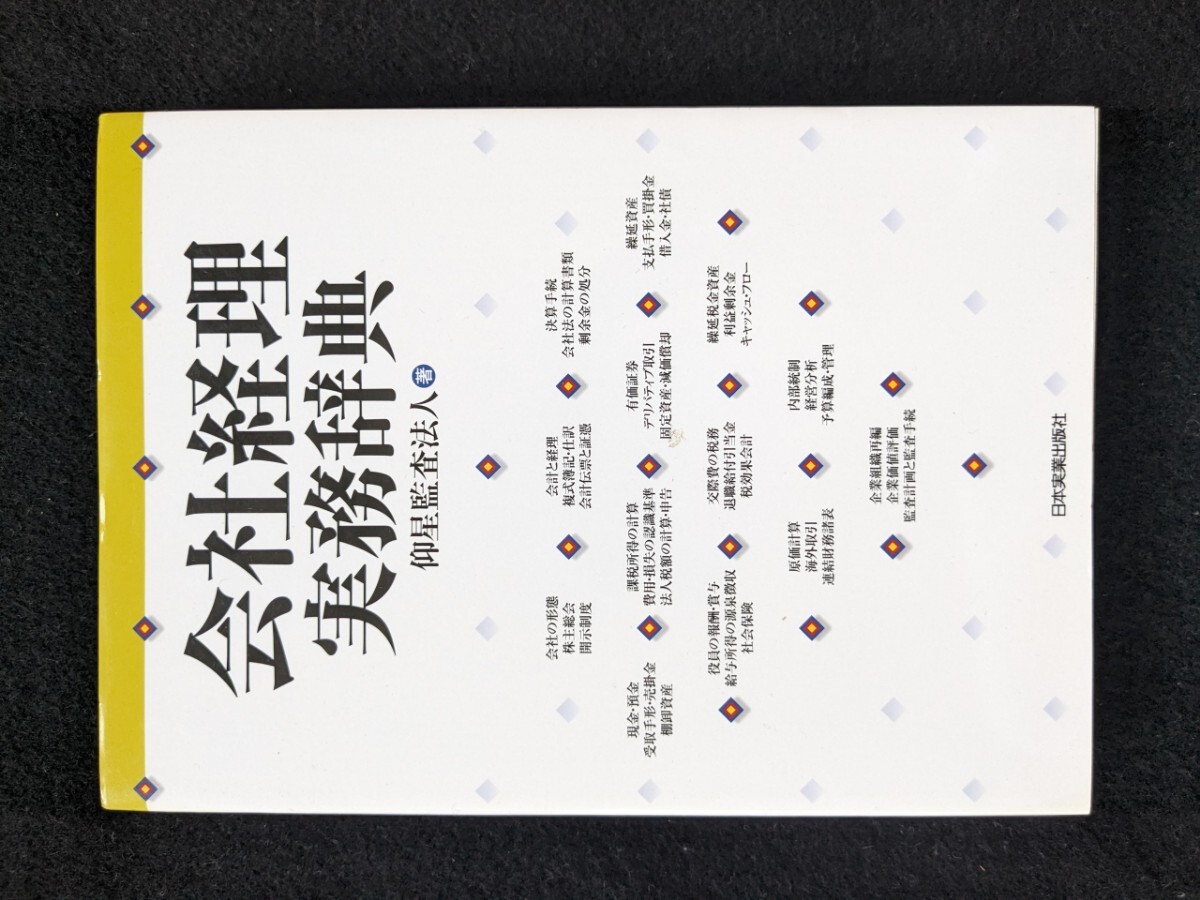 会社経理
実務辞典
仰星監査法人 著
会社の形態
株主総会
開示制度
会計と経理
複式簿記・仕訳
会計伝票と証憑
決算手続
会社法の計算書類
剰余金の処分
現金・預金
受取手形・売掛金
棚卸資産
課税所得の計算
費用・損失の認識基準
法人税額の計算・申告
有価証券
デリバティブ取引
固定資産・減価償却
繰延資産
支払手形・買掛金
借入金・社債
役員の報酬・賞与
給与所得の源泉徴収
社会保険
交際費の税務
退職給付引当金
税効果会計
繰延税金資産
利益剰余金
キャッシュ・フロー
原価計算
海外取引
連結財務諸表
内部統制
経営分析
予算編成・管理
企業組織再編
企業価値評価
監査計画と監査手続
日本実業出版社